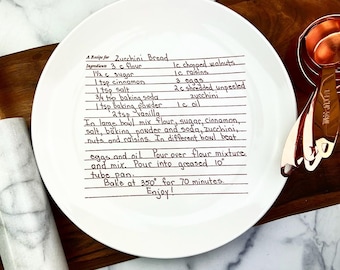 A Recipe for Zucchini Bread
Ingredients 3 c flour 1c chopped walnuts
1½ c sugar 1c raisins
1 tsp cinnamon 3 eggs
1 tsp salt 2c shredded unpeeled
¾ tsp baking soda zucchini
1 tsp baking powder 1c oil
2 tsp vanilla
In large bowl mix flour, sugar, cinnamon,
salt, baking powder and soda, zucchini,
nuts and raisins. In different bowl beat
eggs and oil. Pour over flour mixture
and mix. Pour into greased 10"
tube pan.
Bake at 350° for 70 minutes.
Enjoy!